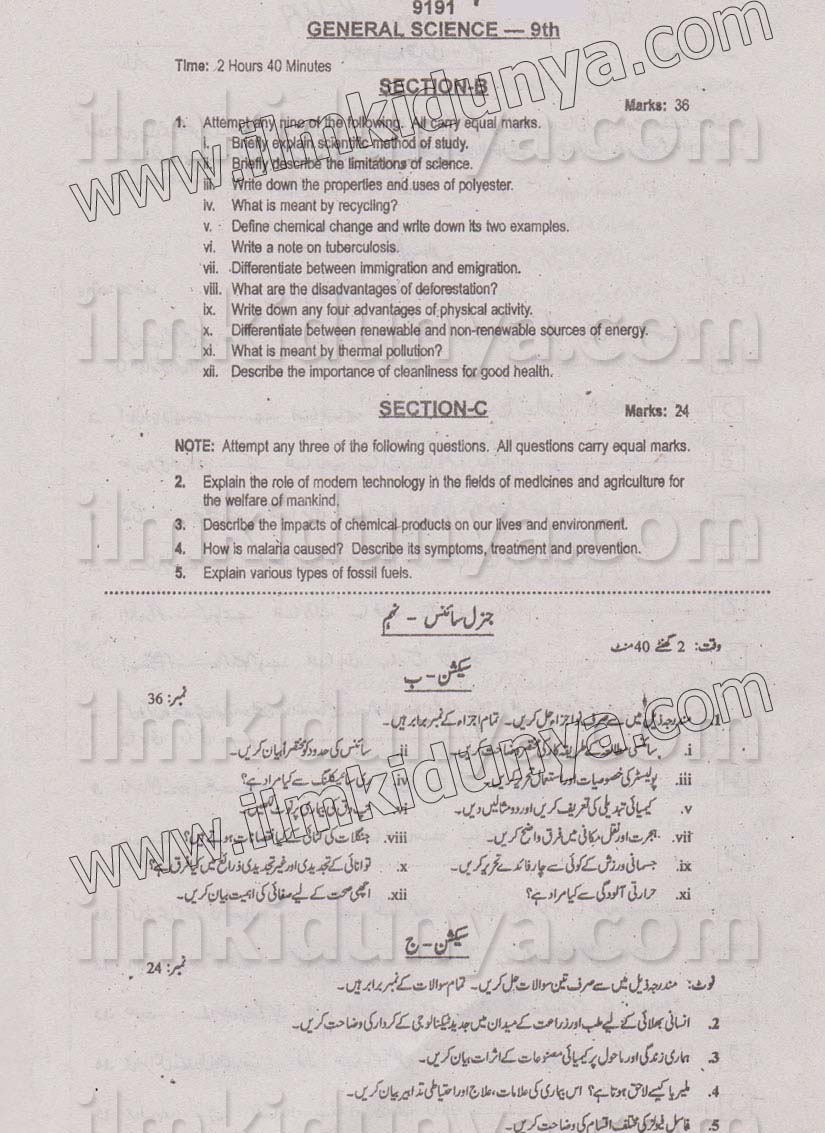 9191
GENERAL SCIENCE — 9th
Time: 2 Hours 40 Minutes
SECTION-B
Marks: 36
1. Attempt any nine of the following. All carry equal marks.
i. Briefly explain scientific method of study.
ii. Briefly describe the limitations of science.
iii. Write down the properties and uses of polyester.
iv. What is meant by recycling?
v. Define chemical change and write down its two examples.
vi. Write a note on tuberculosis.
vii. Differentiate between immigration and emigration.
viii. What are the disadvantages of deforestation?
ix. Write down any four advantages of physical activity.
x. Differentiate between renewable and non-renewable sources of energy.
xi. What is meant by thermal pollution?
xii. Describe the importance of cleanliness for good health.
SECTION-C
Marks: 24
NOTE: Attempt any three of the following questions. All questions carry equal marks.
2. Explain the role of modern technology in the fields of medicines and agriculture for
the welfare of mankind.
3. Describe the impacts of chemical products on our lives and environment.
4. How is malaria caused? Describe its symptoms, treatment and prevention.
5. Explain various types of fossil fuels.
جنرل سائنس - نہم
وقت: 2 گھنٹے 40 منٹ
سیکشن - ب
نمبر: 36
1. مندرجہ ذیل میں سے صرف نو اجزاء حل کریں۔ تمام اجزاء کے نمبر برابر ہیں۔
i. سائنسی مطالعہ کے طریقہ کار کی مختصر وضاحت کریں۔ ii. سائنس کی حدود کو مختصراً بیان کریں۔
iii. پولیسٹر کی خصوصیات اور استعمال تحریر کریں۔ iv. ری سائیکلنگ سے کیا مراد ہے؟
v. کیمیائی تبدیلی کی تعریف کریں اور دو مثالیں دیں۔ vi. تپ دق کی بیماری پر نوٹ لکھیں۔
vii. ہجرت اور نقل مکانی میں فرق واضح کریں۔ viii. جنگلات کی کٹائی کے کیا نقصانات ہوتے ہیں؟
ix. جسمانی ورزش کے کوئی سے چار فائدے تحریر کریں۔ x. توانائی کے تجدیدی اور غیر تجدیدی ذرائع میں کیا فرق ہے؟
xi. حرارتی آلودگی سے کیا مراد ہے؟ xii. اچھی صحت کے لیے صفائی کی اہمیت بیان کریں۔
سیکشن - ج
نمبر: 24
نوٹ: مندرجہ ذیل میں سے صرف تین سوالات حل کریں۔ تمام سوالات کے نمبر برابر ہیں۔
2. انسانی بھلائی کے لیے طب اور زراعت کے میدان میں جدید ٹیکنالوجی کے کردار کی وضاحت کریں۔
3. ہماری زندگی اور ماحول پر کیمیائی مصنوعات کے اثرات بیان کریں۔
4. ملیریا کیسے لاحق ہوتا ہے؟ اس بیماری کی علامات، علاج اور احتیاطی تدابیر بیان کریں۔
5. فاسل فیولز کی مختلف اقسام کی وضاحت کریں۔
www.ilmkidunya.com
www.ilmkidunya.com
ilmkidunya.com
ilmkidunya.com
ilmkidunya.com
ilmkidunya.com
ilmkidunya.com
ilmkidunya.com